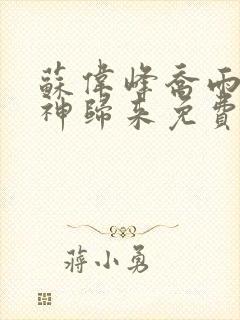 蘇偉峰喬雨
神歸來免費
蔣小勇